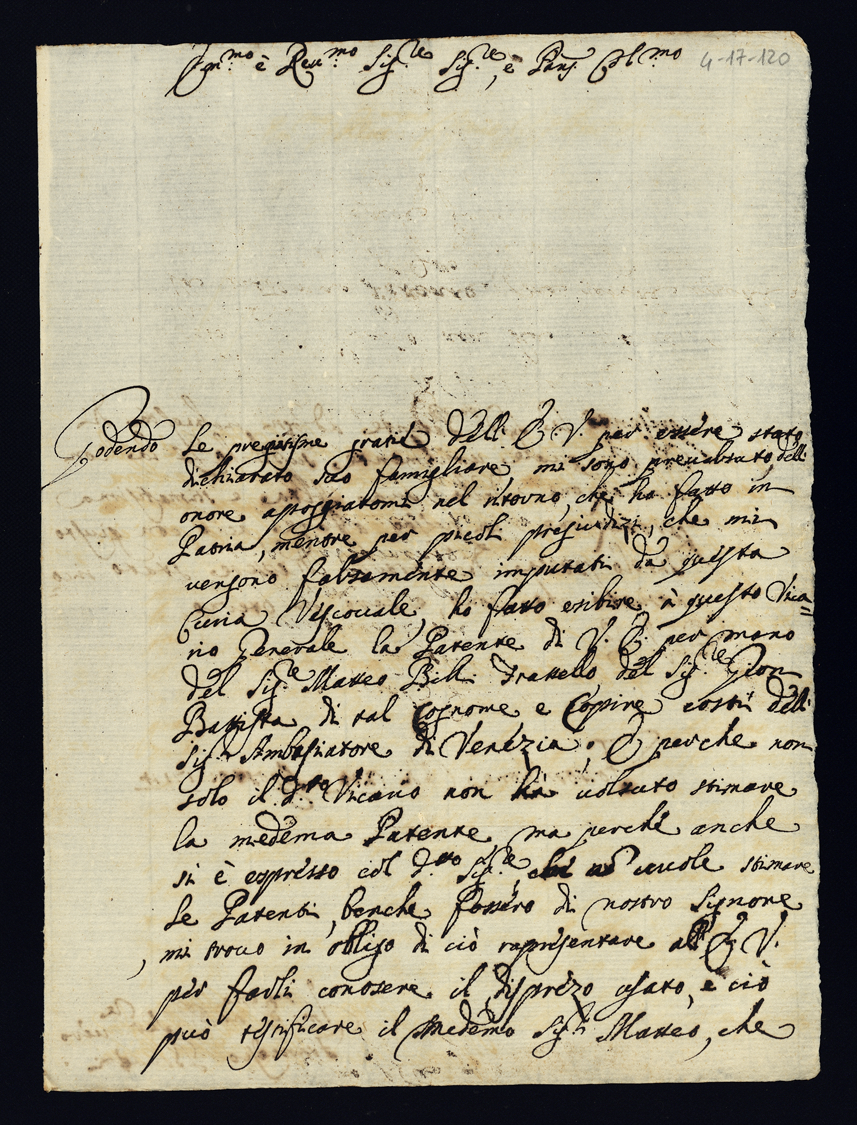 Em.mo è Reu.mo Sig.re Sig.re, è Pan.e Col.mo
4-17-120
Godendo le pregiatisme gratie dell' E. V. per essere stato
dichiarato suo famigliare mi sono preualsuto dell
onore apoggiatomi nel ritorno, che ho fatto in
Patria, mentre per picoli pregiudizi, che mi
uengono falsamente imputati da questa
Curia Vescouale, ho fatto esibire à questo Vica=
rio Generale la Patente di V. E. per mano
del Sig.re Matteo Belli Fratello del Sig.re Gion
Battista di tal Cognome e Copire costì dell
Sig.r Ambasiatore di Venezia; E perche non
solo il d.tto Vicario non ha uolsuto stimare
la medema Patente ma perche anche
si è espresso col d.tto Sig.re, che uuole stimare
le Patenti, benche fossero di nostro Signore
, mi trouo in obligo di ciò rapresentare all' E. V.
per farli conosere il disprezo usato, e ciò
può testificare il medemo Sig.r Matteo, che